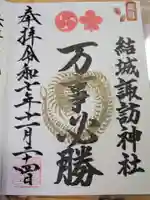 結城諏訪神社
万事必勝
奉拝令和六年十二月二十四日